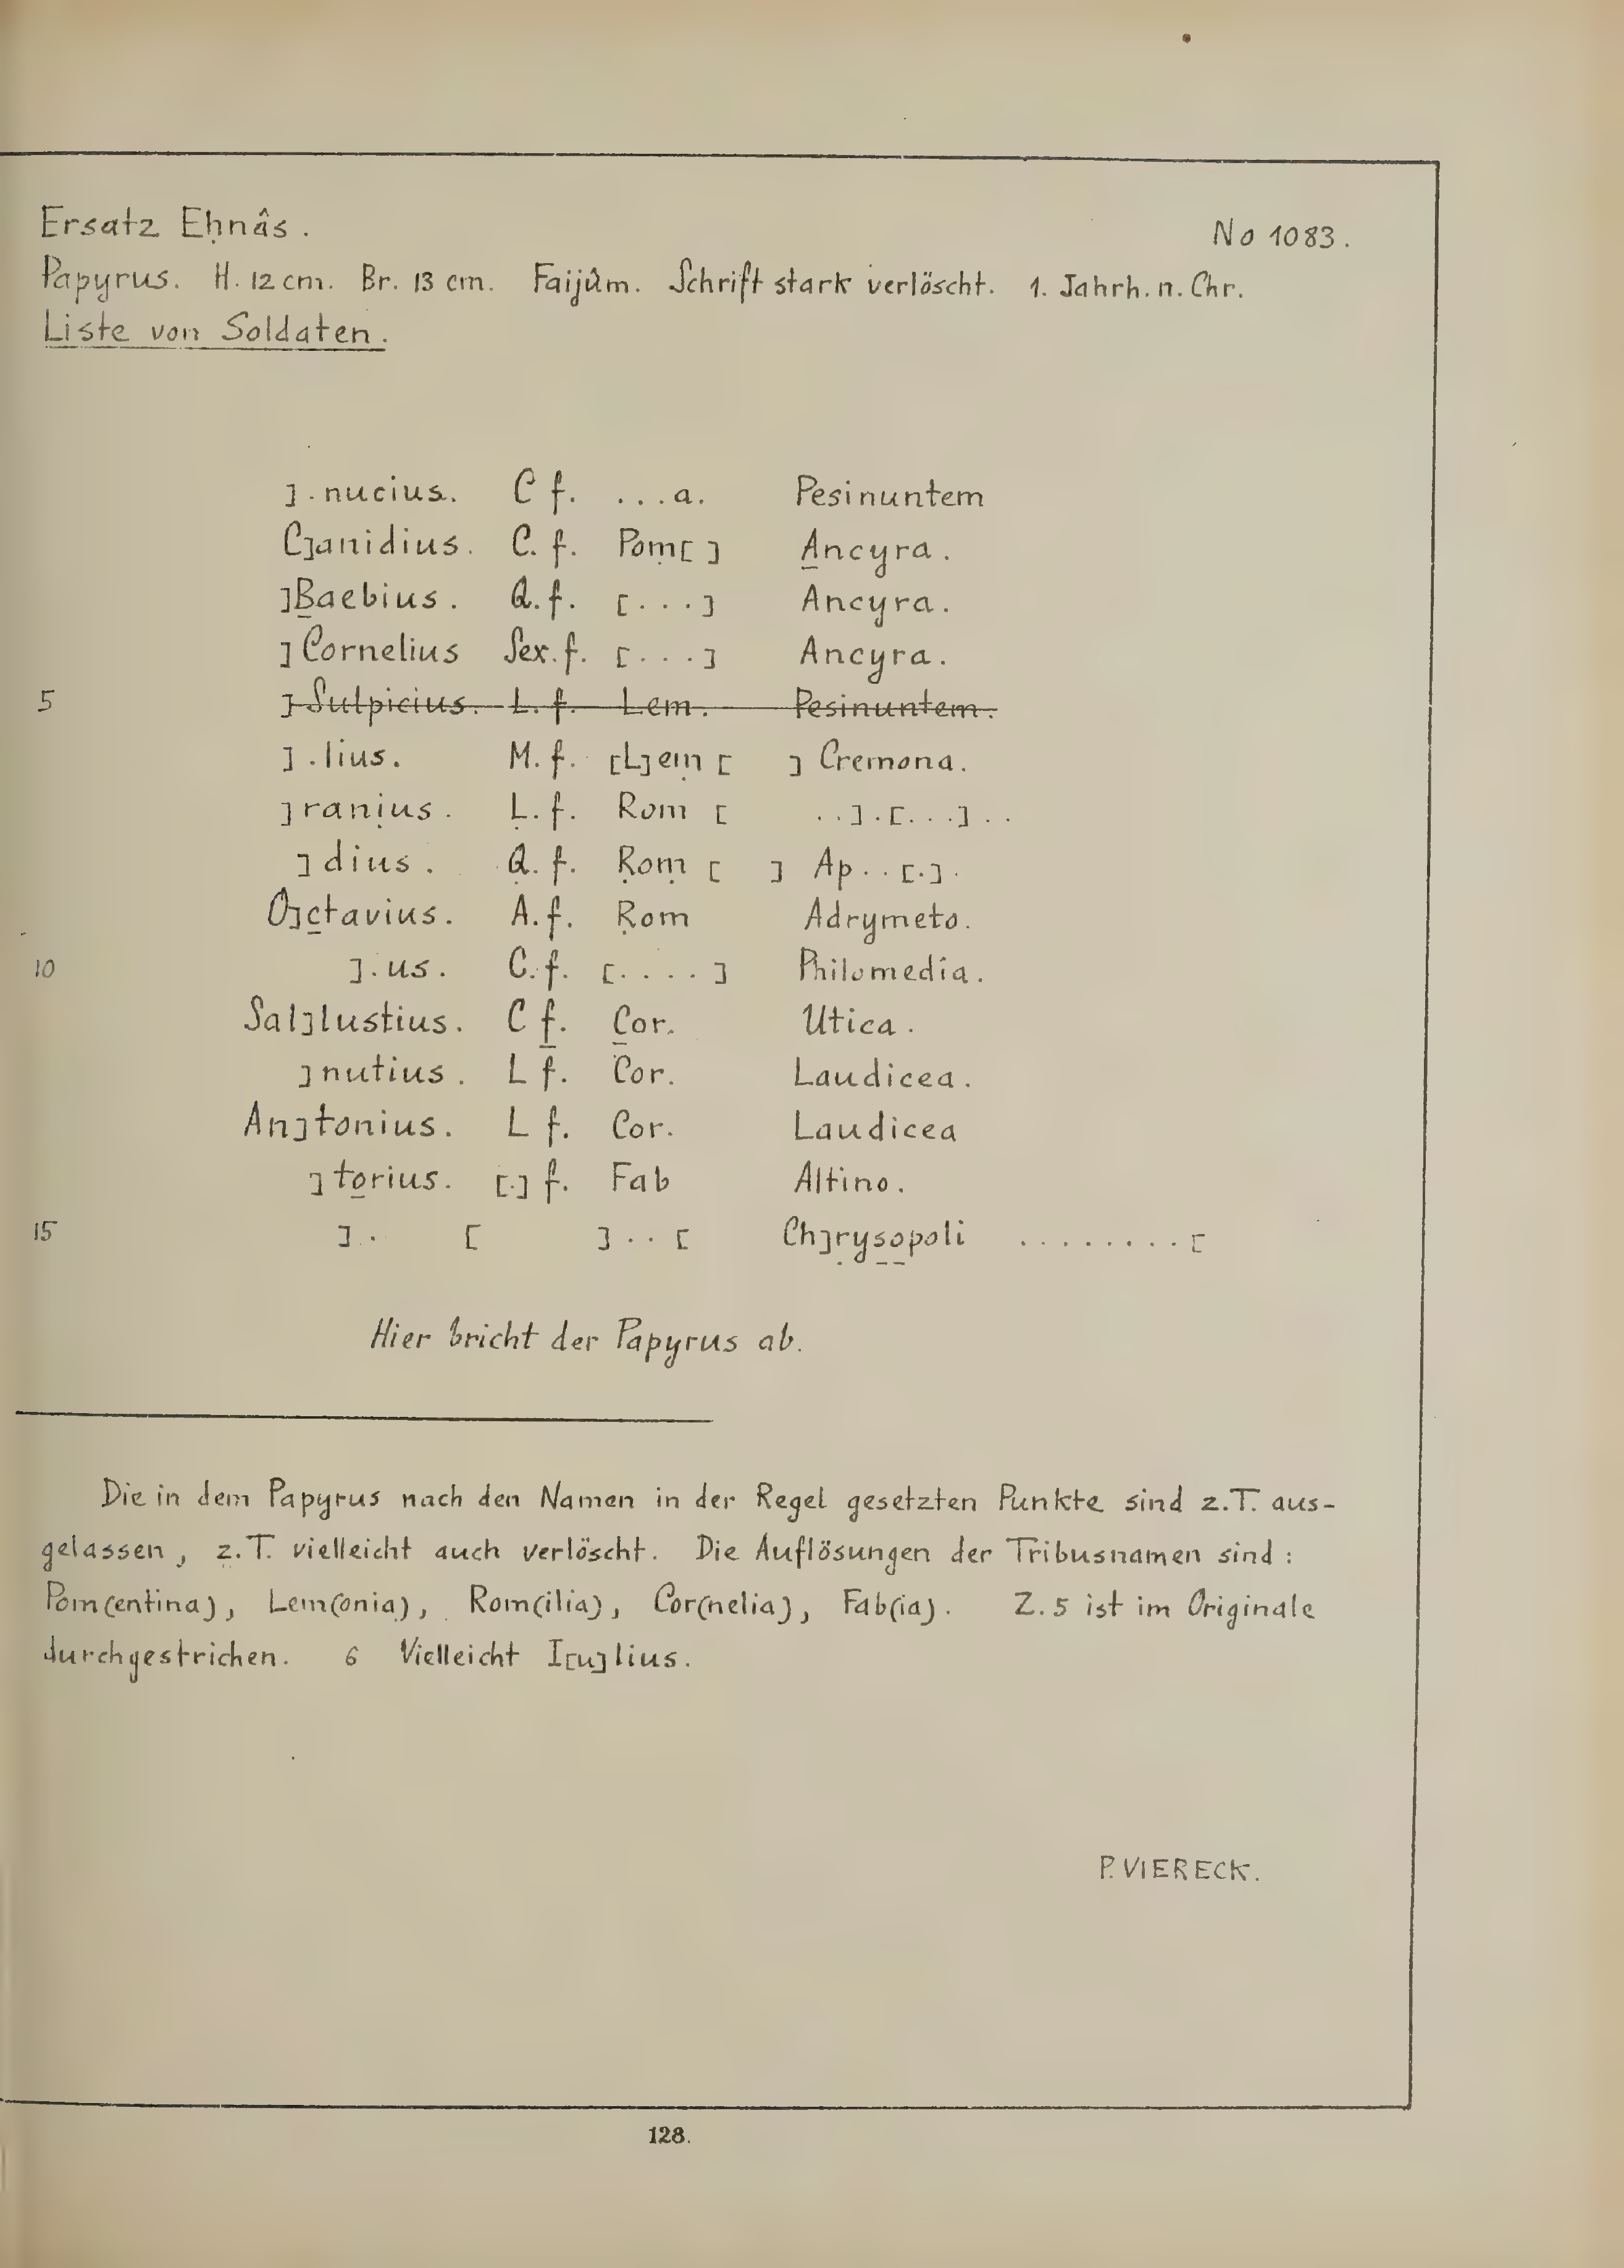 Ersatz Eḥnâs. No 1083.
Papyrus. H. 12 cm. Br. 13 cm. Faijûm. Schrift stark verlöscht. 1. Jahrh. n. Chr.
Liste von Soldaten.
]. nucius. C f. ...a. Pesinuntem
C]anidius. C. f. Poṃ[ ] Ancyra.
]Baebius. Q. f. [...] Ancyra.
]Cornelius Sex. f. [...] Ancyra.
5 ]Sulpicius. L. f. Lem. Pesinuntem.
] .lius. M. f. [L]eṃ [ ] Cremona.
]ranịus. Ḷ. f. Rom [ ..].[...]..
]dius. Q̣. f. Ṛoṃ [ ] Ap..[.].
O]ctavius. A. f. Ṛom Adrymeto.
10 ].us. C. f. [....] Philomedia.
Sal]lustius. C f. Cor. Utica.
]nutius. L f. Cor. Laudicea.
An]tonius. L f. Cor. Laudicea
]torius. [.] f. Fab Altino.
15 ].. [ ]..[ Ch]ṛysopoli ........[
Hier bricht der Papyrus ab.
Die in dem Papyrus nach den Namen in der Regel gesetzten Punkte sind z.T. aus-
gelassen, z.T. vielleicht auch verlöscht. Die Auflösungen der Tribusnamen sind:
Pom(entina), Lem(onia), Rom(ilia), Cor(nelia), Fab(ia). Z. 5 ist im Originale
durchgestrichen. 6 Vielleicht I[u]lius.
P. VIERECK.
128.